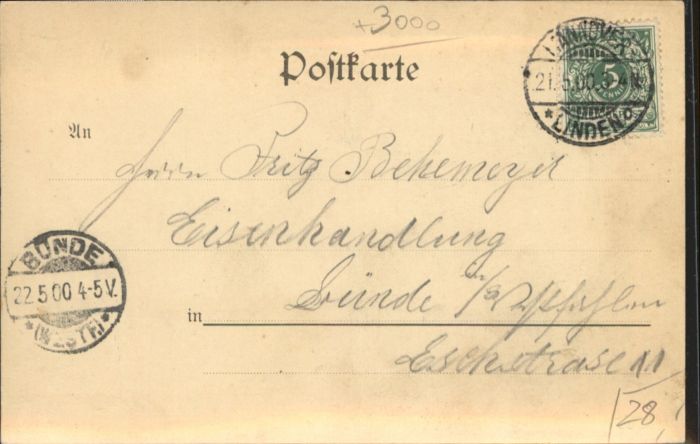 +3000
Postkarte
HANNOVER
21.5.00.
* LINDEN *
5
PFENNIG
An
Herrn Fritz Bekemeyer
Eisenhandlung
BÜNDE
22.5.00 4-5 V.
* (WESTF.) *
Bünde i/Westfahlen
in
Eschstrase 11
28,